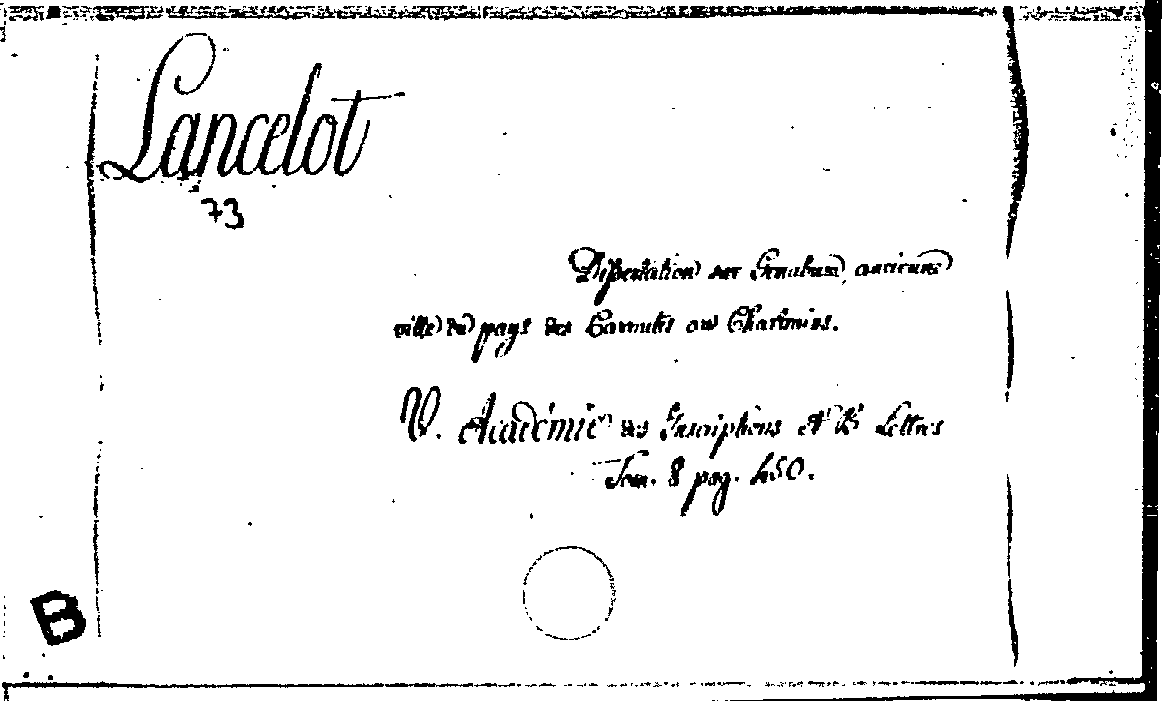 Lancelot
73
Dissertation sur Genabum, ancienne
ville du pays des Carnutes ou Chartrains.
V. Académie des Inscriptions et B. Lettres
Tom. 8 pag. 450.
B